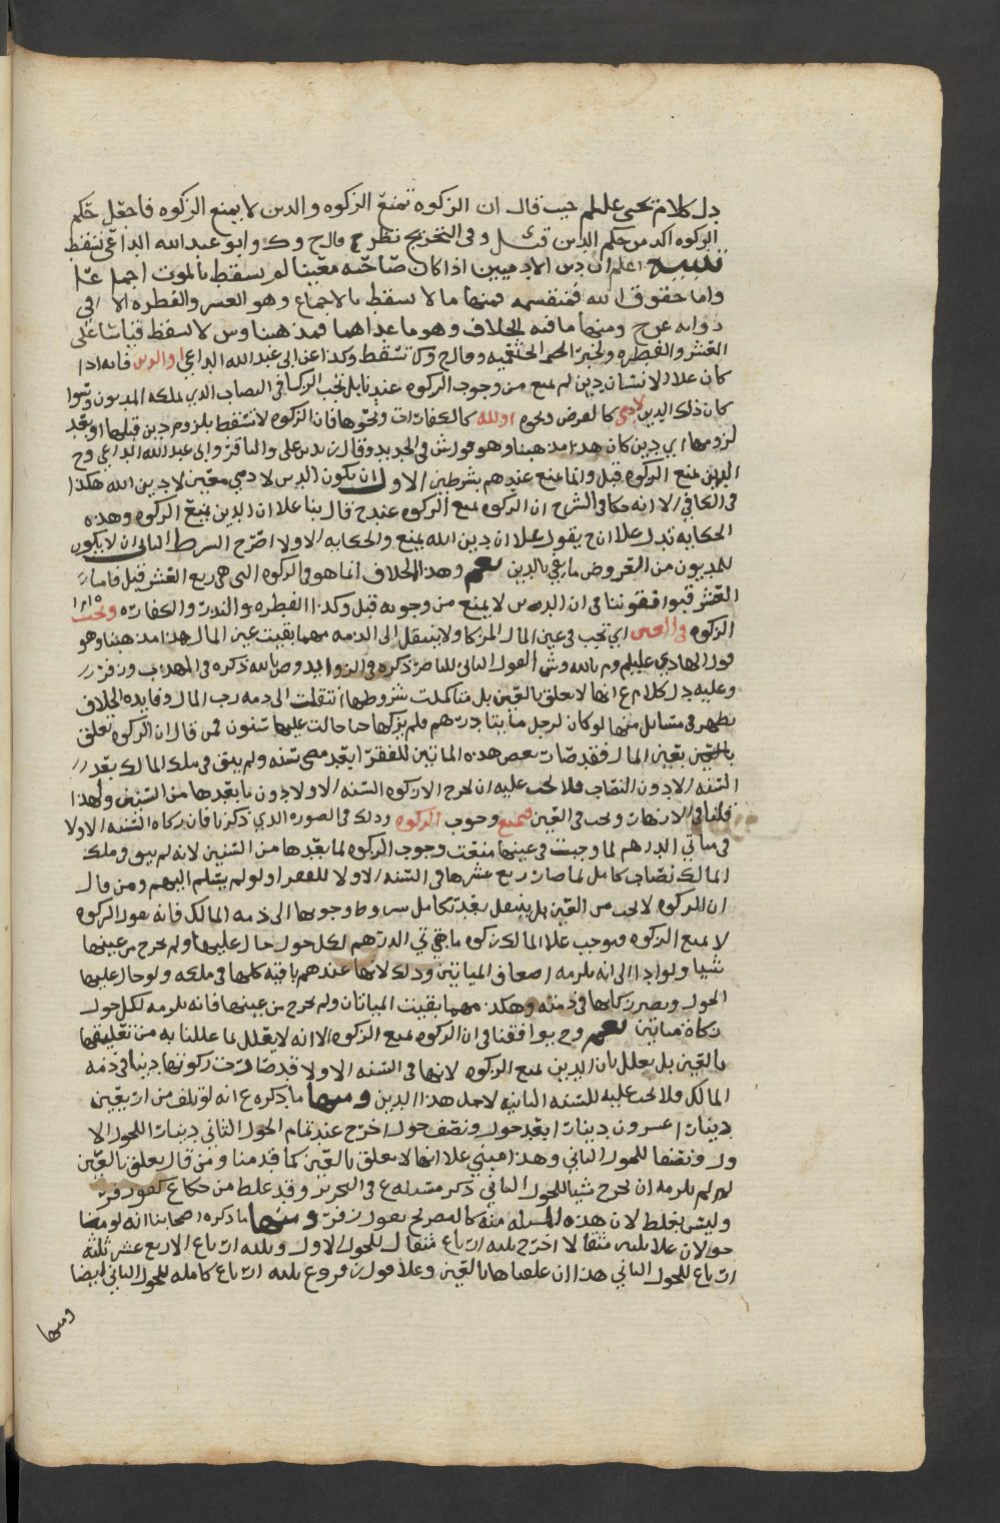 دل كلام يحيى عليلم حيث قال ان الزكوه تمنع الزكوه والدين لا يمنع الزكوه فاجعل حكم
الزكوه اكد من حكم الدين وفى التخريج نظر وابو عبدالله الداعى تسقط
تنبيه اعلم ان دين الادميين اذا كان صاحبه معينا لم يسقط بالموت اجماعا
واما حقوق الله فمنقسمه فمنها ما لا يسقط بالاجماع وهو العشر والفطره الا فى
روايه عن ح ومنها ما فيه الخلاف وهو ما عداهما فمذهبنا وش لا يسقط قياسا على
العشر والفطره ولخبر الخثعميه وقال ح وك تسقط وكذا عن ابى عبد الله الداعى او الدين فانه اذا
كان على الانسان دين لم يمنع من وجوب الزكوه عندنا بل تجب الزكاه فى النصاب الذى يملكه المديون وسوا
كان ذلك الدين لادمى كالقرض ونحوه او لله كالكفارات ونحوها فان الزكوه لا تسقط بلزوم دين قبلها او بعد
لزومها اى دين كان هذا مذهبنا وهو قول ش فى الجديد وقال زيد بن على والباقر وابى عبدالله الداعى وح
الدين يمنع الزكوه قيل وانما يمنع عندهم بشرطين الاول ان يكون الدين لادمى معين لا دين الله هكذا
فى الكافى الا انه حكا فى الشرح ان الزكوه تمنع الزكوه عند ح قال بنا على ان الدين يمنع الزكوه وهذه
الحكايه تدل على ان ح يقول على ان دين الله يمنع والحكايه الاولا اصرح الشرط الثانى ان لا يكون
للمديون من العروض ما يفى بالدين نعم وهذا الخلاف انما هو فى الزكوه التى هى ربع العشر قيل فاما
العشر فهو يوافقوننا فى ان الدين لا يمنع من وجوبه قيل وكذا الفطره والنذر والكفاره وتجب
الزكوه فى العين اى تجب فى عين المال المزكا ولا ينتقل الى الذمه مهما بقيت عين المال هذا مذهبنا وهو
قول الهادى عليلم وم بالله وش القول الثانى للناصر ذكره فى الزوايد وص بالله ذكره فى المهذب وزفر
وعليه دل كلام ع انها لا تعلق بالعين بل متا كملت شروطها انتقلت الى ذمه رب المال وفايده الخلاف
تظهر فى مسايل منها لو كان لرجل مايتا درهم فلم يزكها حتا حالت عليها سنون فمن قال ان الزكوه تعلق
بالعين بعين المال فقد صارت بعض هذه المايتين للفقرا بعد مضى سنه ولم يبق فى ملك المالك بعد
السنه الا دون النصاب فلا تجب عليه ان يخرج الا زكوه السنه الاولا دون ما بعدها من السنين ولهذا
قلنا فى الازهار وتجب فى العين فتمنع وجوب الزكوه وذلك فى الصوره الذى ذكرنا فان زكاه السنه الاولا
فى مايتى الدرهم لما وجبت فى عينها منعت وجوب الزكوه لما بعدها من السنين لانه لم يبق فى ملك
المالك نصاب كامل لما صار ربع عشرها فى السنه الاولا للفقرا ولو لم يتسلم اليهم ومن قال
ان الزكوه لا تجب من العين بل ينتقل بعد تكامل شروط وجوبها الى ذمه المالك فانه يقول الزكوه
لا تمنع الزكوه فيوجب على المالك زكوه مايتى الدرهم لكل حول حال عليها ولو لم يخرج من عينها
شيا ولو ادا الى انه يلزمه اضعاف المايتين وذلك لانها عندهم باقيه كلها فى ملكه ولو حال عليها
الحول ويصير زكاتها فى ذمته وهكذا مهما بقيت المايتان ولم يخرج من عينها فانه يلزمه لكل حول
زكاه مايتين نعم وح يوافقنا فى ان الزكوه تمنع الزكوه الا انه لا يعلل لما عللنا به من تعليقها
بالعين بل يعلل بان الدين يمنع الزكوه لانها فى السنه الاولا قد صارت زكوتها دينا فى ذمه
المالك فلا تجب عليه للسنه الثانيه لاجل هذا الدين ومنها ما ذكره ع انه لو تلف من اربعين
دينارا عشرون دينارا بعد حول ونصف حول اخرج عند تمام الحول الثانى دينارا للحول الا
ول ونصفا للحول الثانى وهذا مبنى على انها لا تعلق بالعين كما قدمنا ومن قال تعلق بالعين
لم يلزمه ان يخرج شيا للحول الثانى ذكر مسئله ع فى التحرير وقد غلط من حكا ع كقول زفر
وليس بغلط لان هذه المسله منه كالمصرح بقول زفر ومنها ما ذكره اصحابنا انه لو مضا
حولان على مثقالا اخرج ثلثه ارباع مثقال للحول الاول وثلثه ارباع الا ربع عشر ثلثه
ارباع للحول الثانى هذا ان علقناها بالعين وعلى قول زفر وع ثلثه ارباع كامله للحول الثانى ايضا
ومنها